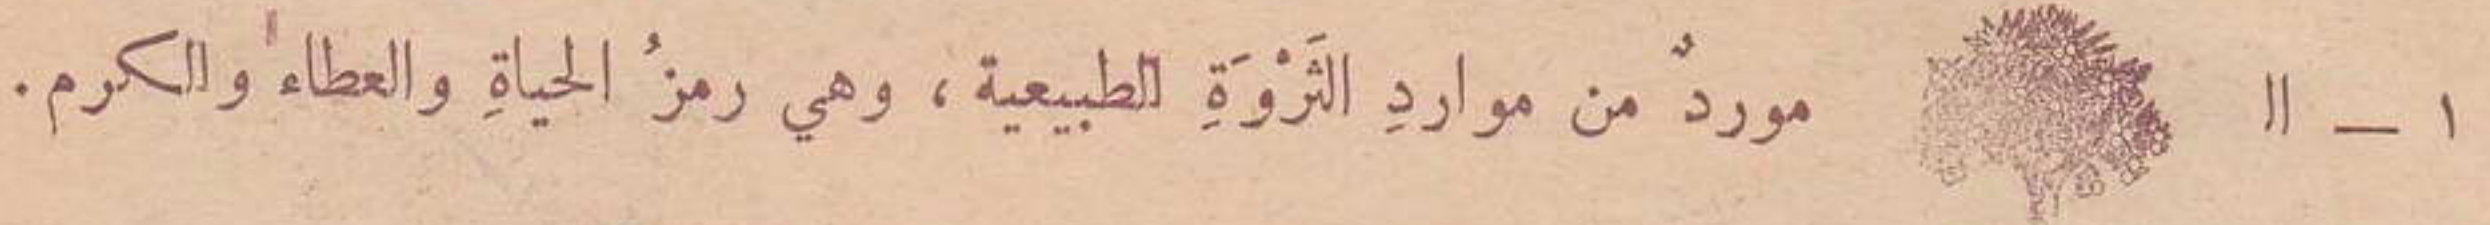 ١ – ال موردٌ من مواردِ الثَرْوَةِ الطبيعية ، وهي رمزُ الحياةِ والعطاء والكرم .